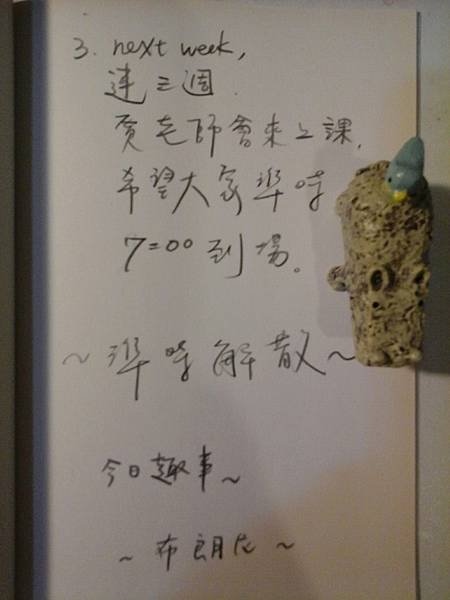 3. next week,
連三週.
賈老師會來上課,
希望大家準時
7:00 到場。
~ 準時解散 ~
今日趣事~
~ 布朗尼 ~